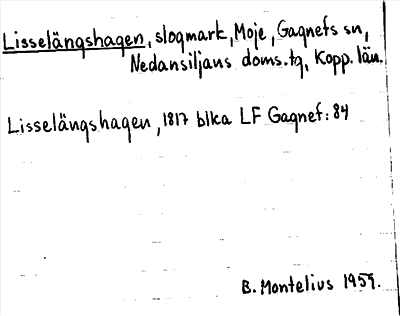 Lisselängshagen, slogmark, Moje, Gagnefs sn,
Nedansiljans doms.tg, Kopp. län.
Lisselängshagen, 1817 blka LF Gagnef: 84
B. Montelius 1959.